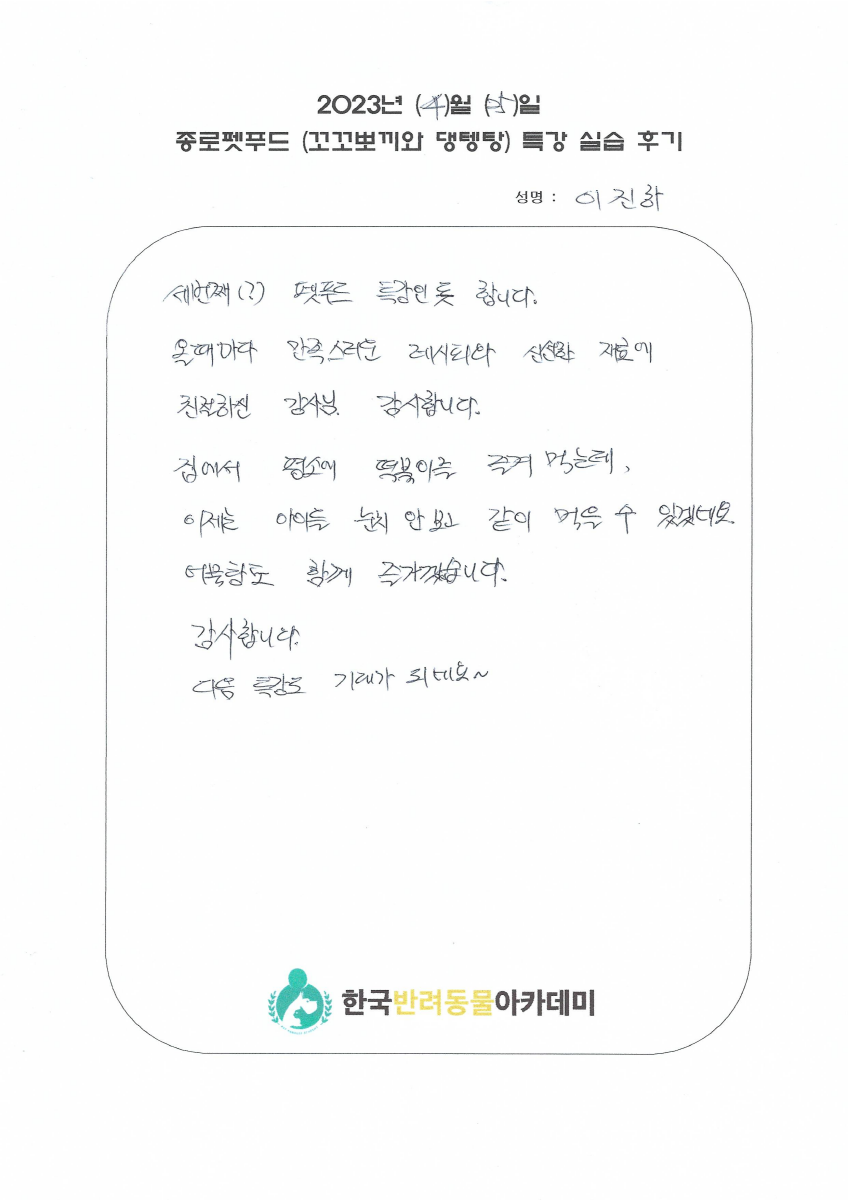 2023년 (4)월 (15)일
종로펫푸드 (꼬꼬뽀끼와 댕텡탕) 특강 실습 후기
성명 : 이진하
세번째(?) 펫푸드 특강인 듯 합니다.
올때마다 만족스러운 레시피와 신선한 재료에
친절하신 강사님. 감사합니다.
집에서 평소에 떡볶이를 즐겨 먹는데,
이제는 아이들 눈치 안 보고 같이 먹을 수 있겠네요.
어묵탕도 함께
감사합니다.
다음 특강도 기대가 되네요~
한국반려동물아카데미